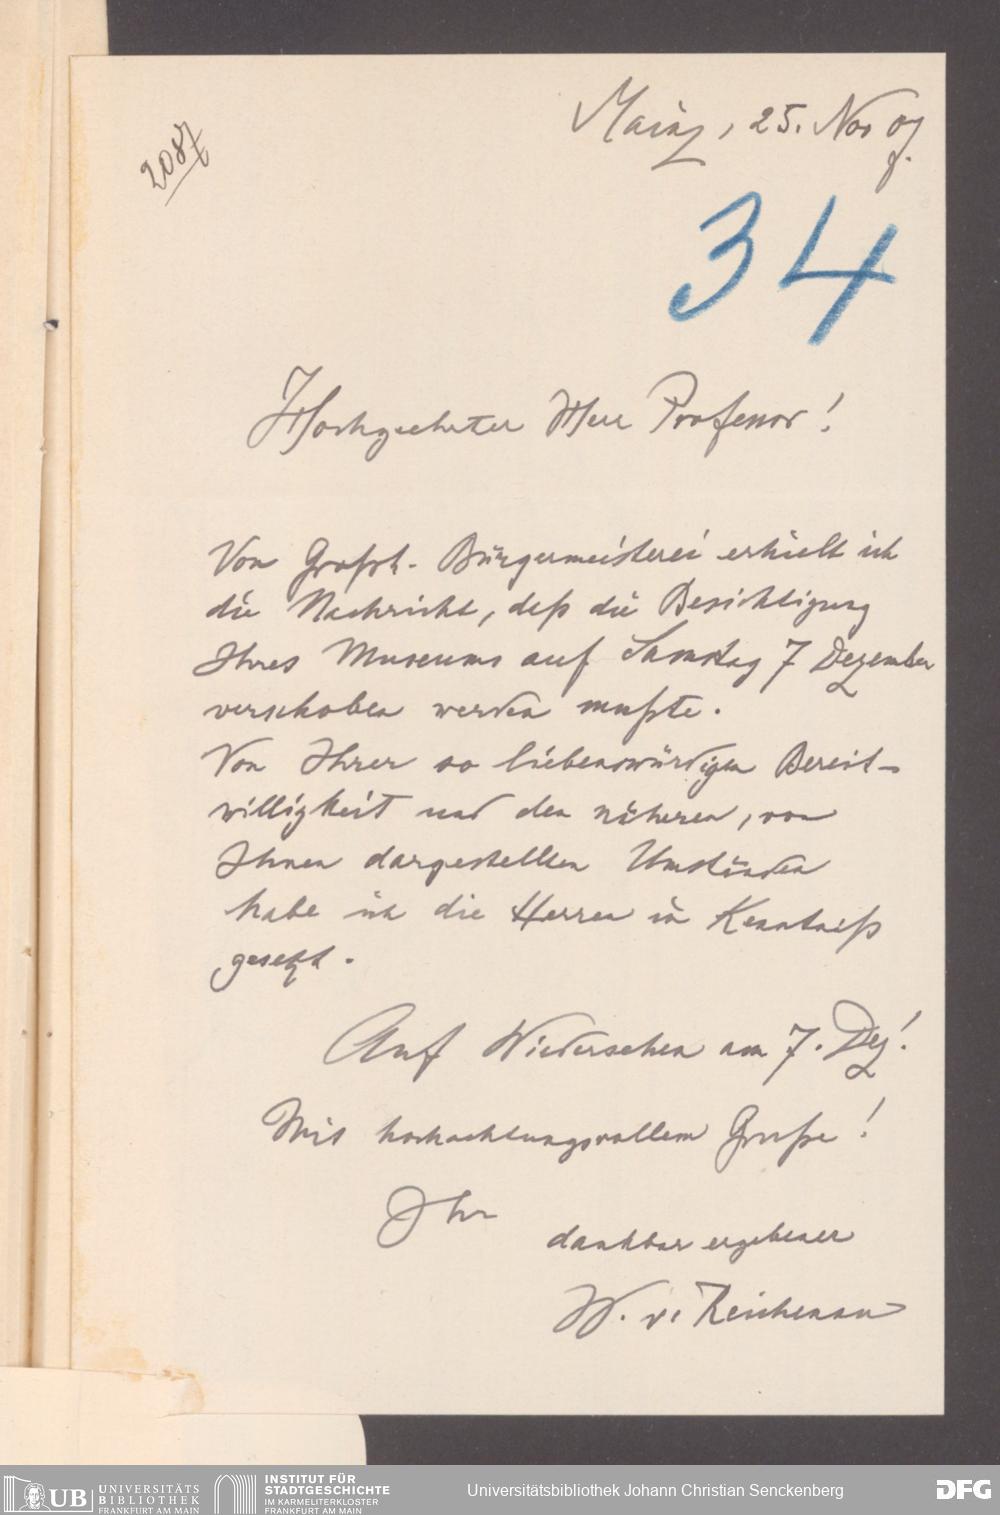 Mainz, 25. Nov 07.
2087
34
Hochgeehrter Herr Professor!
Von Grossh. Bürgermeisterei erhielt ich
die Nachricht, daß die Besichtigung
Ihres Museums auf Samstag 7 Dezember
verschoben werden mußte.
Von Ihrer so liebenswürdigen Bereit-
willigkeit und den näheren, von
Ihnen dargestellten Umständen
habe ich die Herren in Kenntniß
gesetzt.
Auf Wiedersehen am 7. Dez!
Mit hochachtungsvollem Gruße!
Ihr
dankbar ergebener
W. v. Reichenau
UB UNIVERSITÄTS
BIBLIOTHEK
FRANKFURT AM MAIN
INSTITUT FÜR
STADTGESCHICHTE
IM KARMELITERKLOSTER
FRANKFURT AM MAIN
Universitätsbibliothek Johann Christian Senckenberg
DFG